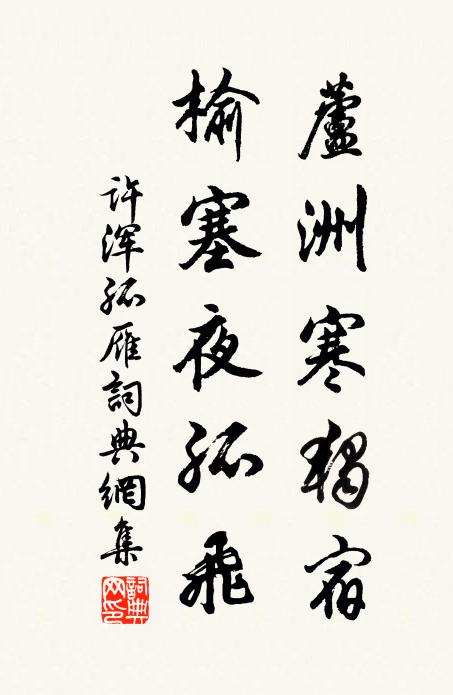 蘆洲寒獨宿
榆塞夜孤飛
许渾孤雁詞典網集
詞典网印